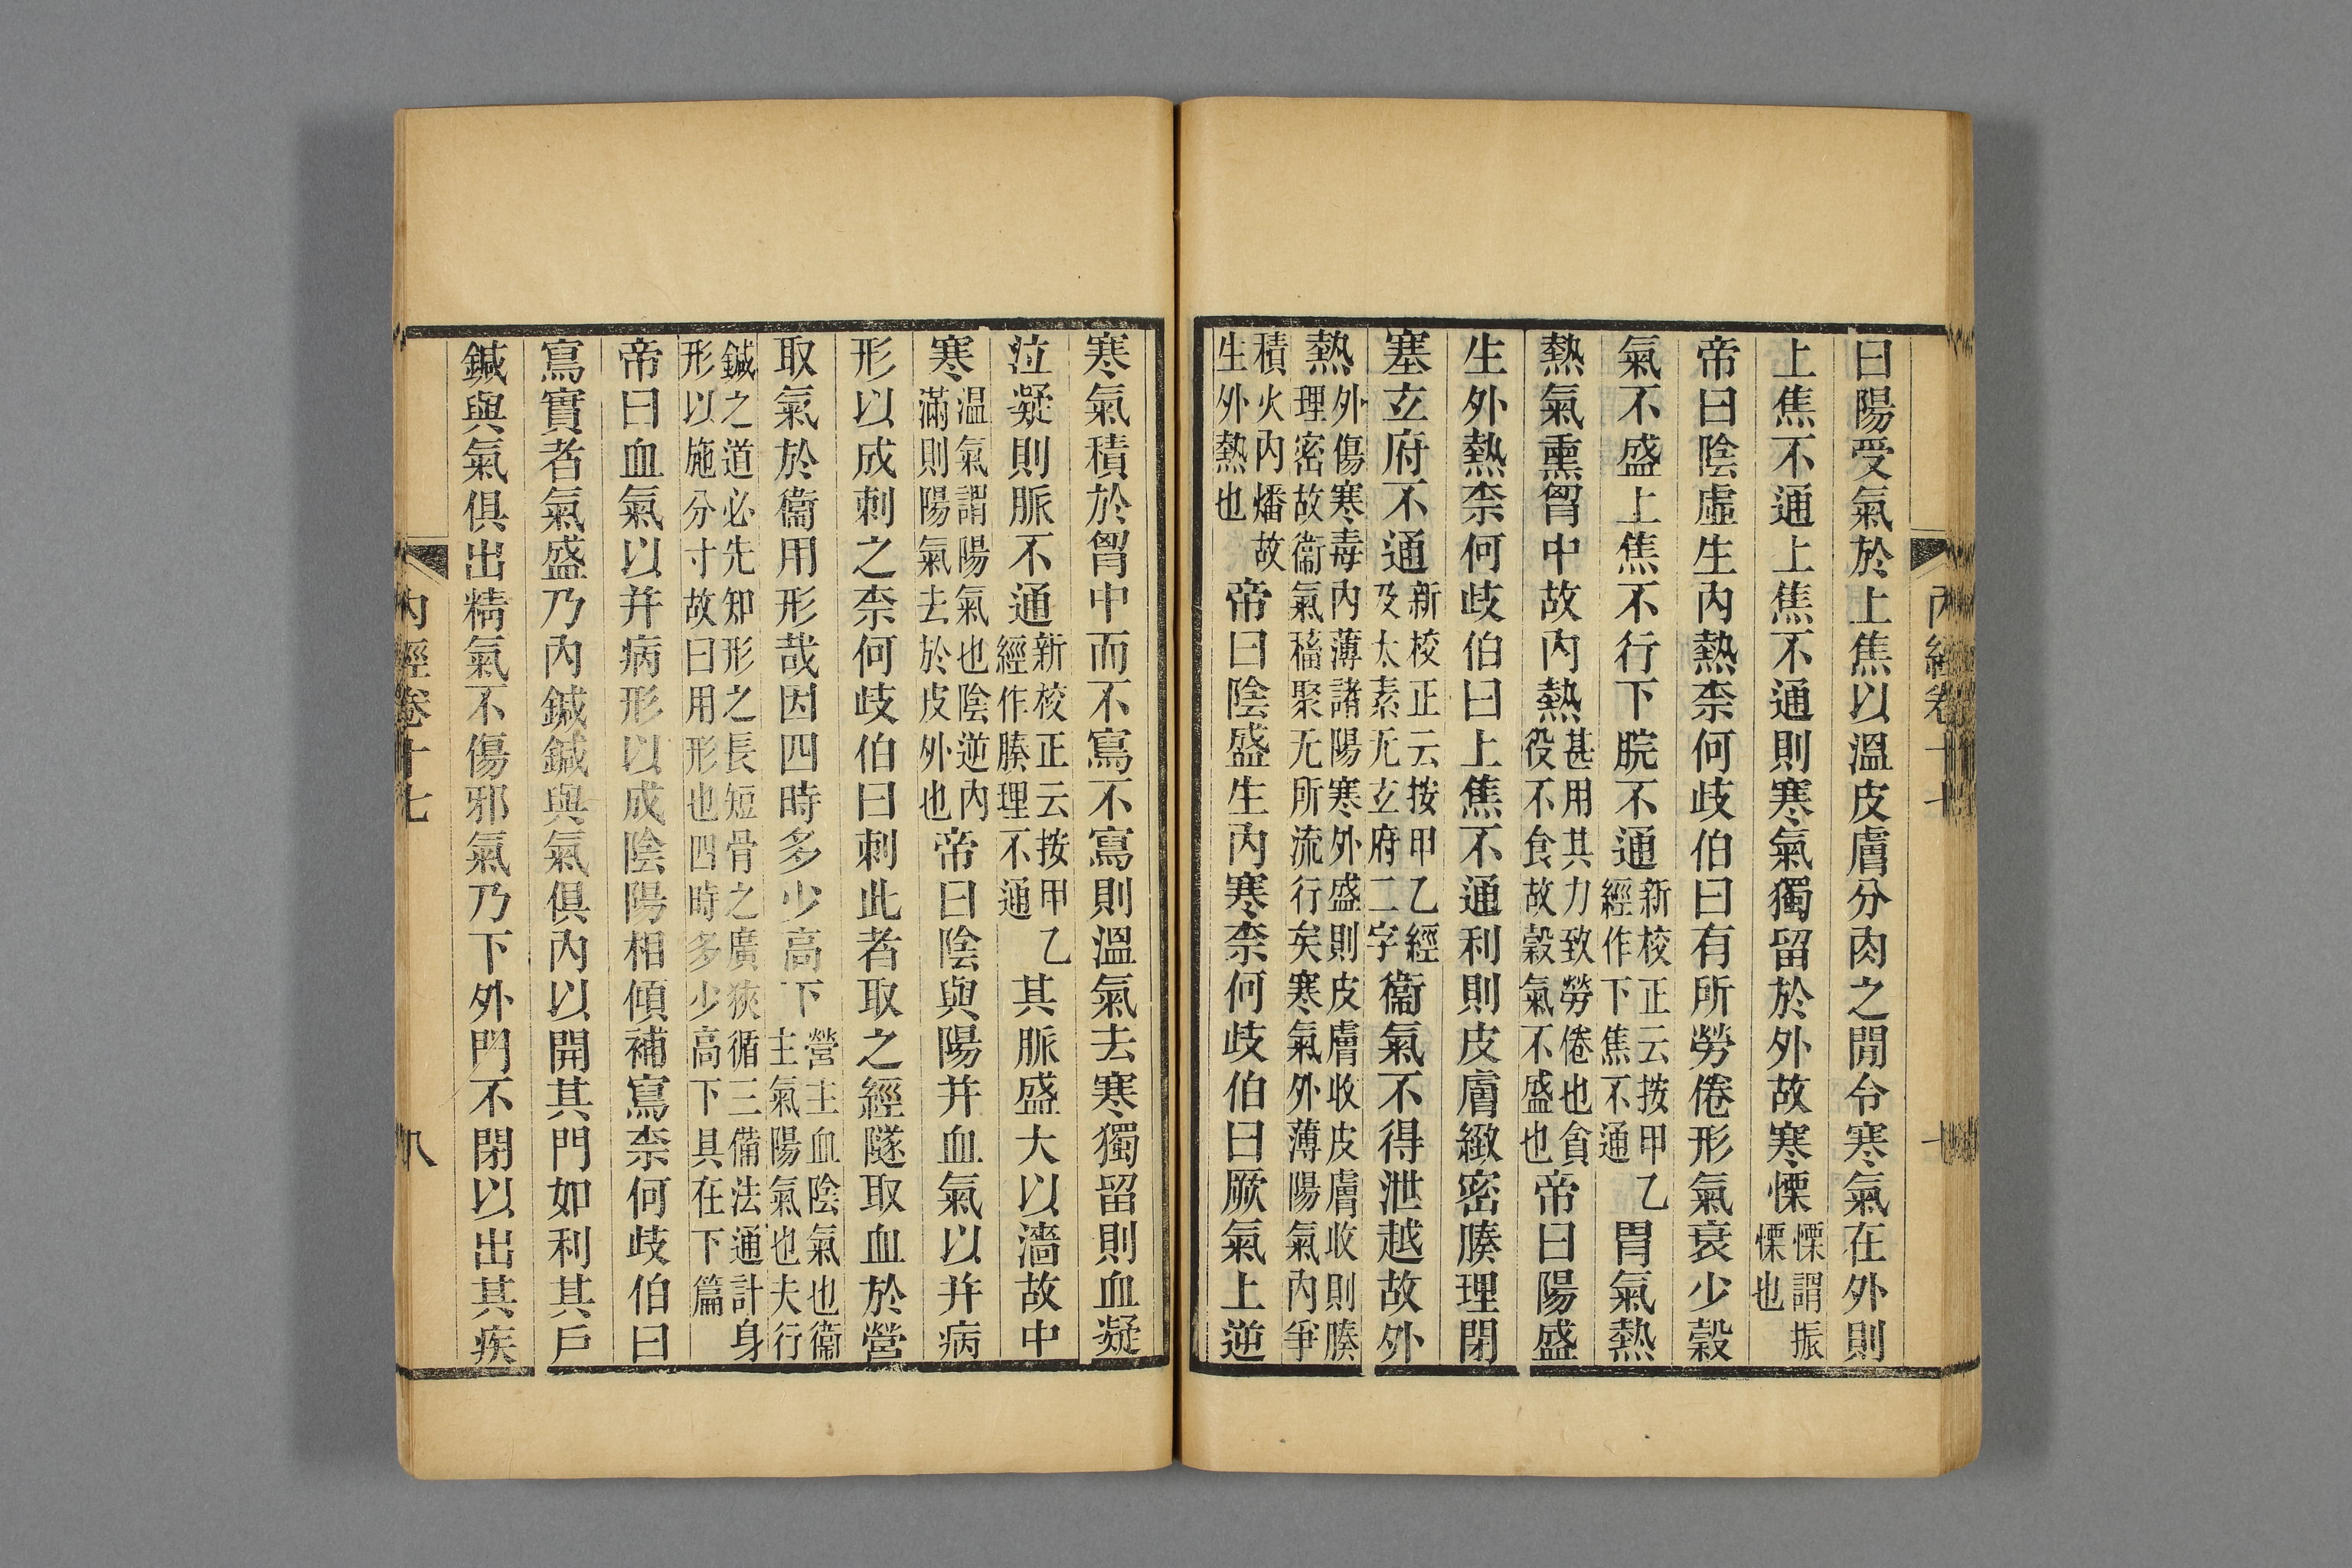 曰陽受氣於上焦以溫皮膚分肉之閒令寒氣在外則
上焦不通上焦不通則寒氣獨留於外故寒慄慄謂振慄也
帝曰陰虛生內熱柰何歧伯曰有所勞倦形氣衰少穀
氣不盛上焦不行下脘不通新校正云按甲乙經作下焦不通胃氣熱
熱氣熏胷中故內熱甚用其力致勞倦也貪役不食故穀氣不盛也帝曰陽盛
生外熱柰何歧伯曰上焦不通利則皮膚緻密腠理閉
塞玄府不通新校正云按甲乙經及太素无玄府二字衞氣不得泄越故外
熱外傷寒毒內薄諸陽寒外盛則皮膚收皮膚收則腠理密故衞氣稸聚无所流行矣寒氣外薄陽氣內爭
積火內燔故生外熱也帝曰陰盛生內寒柰何歧伯曰厥氣上逆
內經卷十七
寒氣積於胷中而不寫不寫則溫氣去寒獨留則血凝
泣凝則脈不通新校正云按甲乙經作腠理不通其脈盛大以濇故中
寒温氣謂陽氣也陰逆內滿則陽氣去於皮外也帝曰陰與陽并血氣以并病
形以成刺之柰何歧伯曰刺此者取之經隧取血於營
取氣於衞用形哉因四時多少高下營主血陰氣也衞主氣陽氣也夫行
鍼之道必先知形之長短骨之廣狹循三備法通計身形以施分寸故曰用形也四時多少高下具在下篇
帝曰血氣以并病形以成陰陽相傾補寫柰何歧伯曰
寫實者氣盛乃內鍼鍼與氣俱內以開其門如利其戶
鍼與氣俱出精氣不傷邪氣乃下外門不閉以出其疾
內經卷十七
八